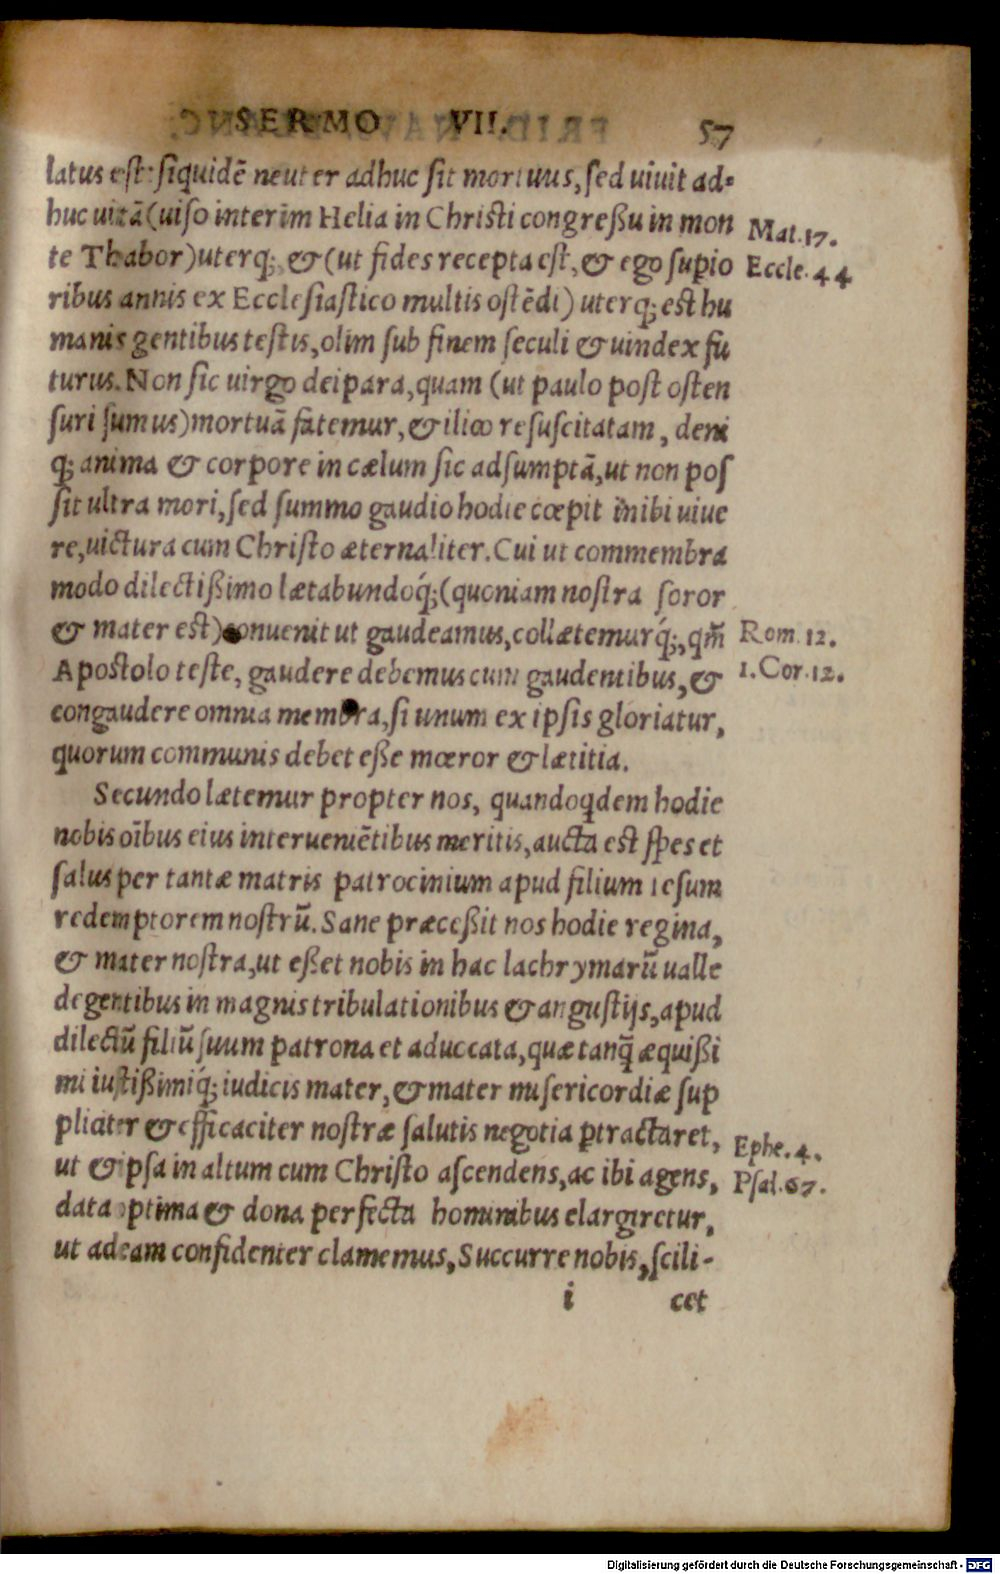 SERMO VII. 57
latus est: siquidē neuter adhuc sit mortuus, sed uiuit ad=
huc uitā (uiso interim Helia in Christi congreßu in mon
te Thabor) uterq;, & (ut fides recepta est, & ego superio
ribus annis ex Ecclesiastico multis ostēdi) uterq; est hu
manis gentibus testis, olim sub finem seculi & uindex fu
turus. Non sic uirgo deipara, quam (ut paulo post osten
suri sumus) mortuā fatemur, & ilico resuscitatam, deni
q; anima & corpore in cælum sic adsumptā, ut non pos
sit ultra mori, sed summo gaudio hodie cœpit inibi uiue
re, uictura cum Christo æternaliter. Cui ut commembra
modo dilectißimo lætabundoq́; (quoniam nostra soror
& mater est) conuenit ut gaudeamus, collætemurq́;, qm̄
Apostolo teste, gaudere debemus cum gaudentibus, &
congaudere omnia membra, si unum ex ipsis gloriatur,
quorum communis debet eße mœror & lætitia.
Secundo lætemur propter nos, quandoqdem hodie
nobis oībus eius interueniētibus meritis, aucta est spes et
salus per tantæ matris patrocinium apud filium Iesum
redemptorem nostrū. Sane præceßit nos hodie regina,
& mater nostra, ut eßet nobis in hac lachrymarū ualle
degentibus in magnis tribulationibus & angustijs, apud
dilectū filiū suum patrona et aduocata, quæ tanq̄ æquißi
mi iustißimiq́; iudicis mater, & mater misericordiæ sup
pliciter & efficaciter nostræ salutis negotia ꝑtractaret,
ut & ipsa in altum cum Christo ascendens, ac ibi agens,
data optima & dona perfecta hominibus elargiretur,
ut ad eam confidenter clamemus, Succurre nobis, scili-
i cet
Mat. 17.
Eccle. 44
Rom. 12.
1. Cor. 12.
Ephe. 4.
Psal. 67.
Digitalisierung gefördert durch die Deutsche Forschungsgemeinschaft - DFG